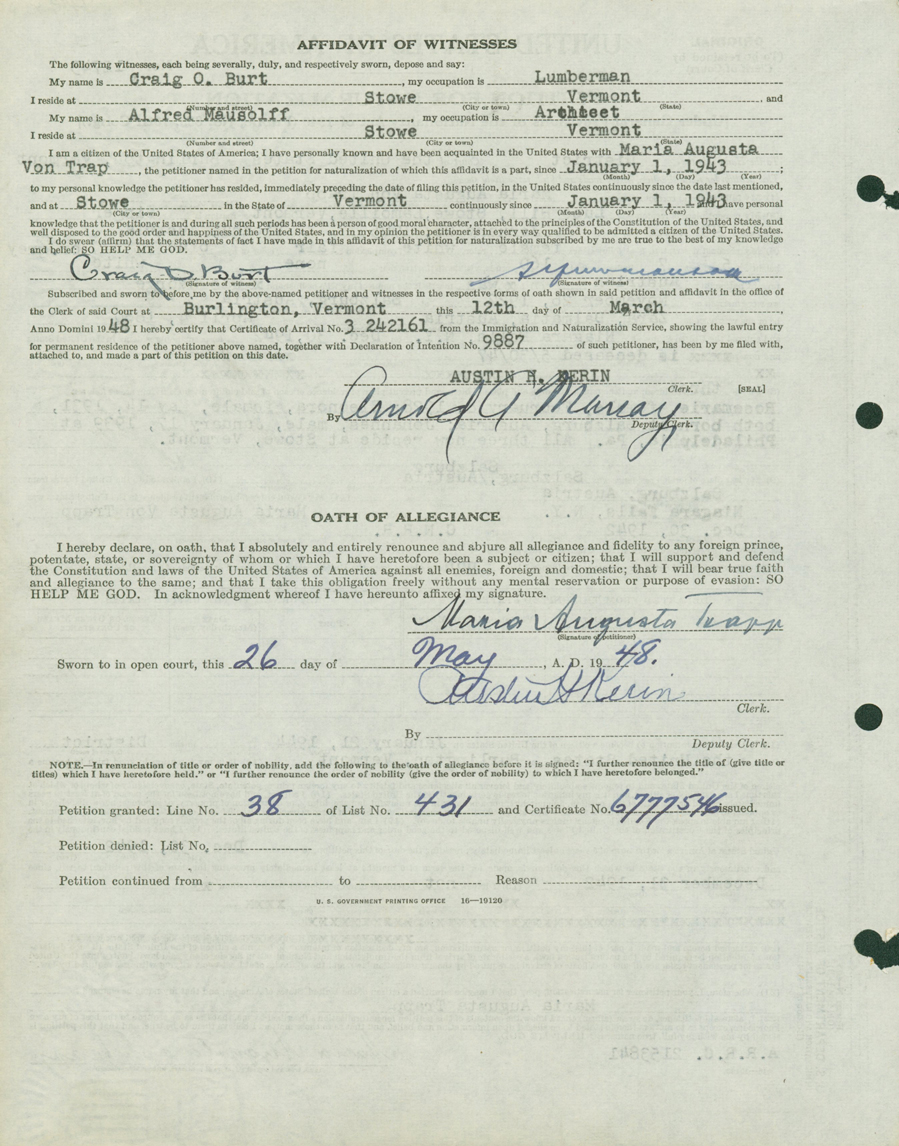 AFFIDAVIT OF WITNESSES
The following witnesses, each being severally, duly, and respectively sworn, depose and say:
My name is Craig O. Burt, my occupation is Lumberman
I reside at Stowe Vermont and
(Number and street) (City or town) (State)
My name is Alfred Mausolff, my occupation is
I reside at Stowe Vermont
(Number and street) (City or town) (State)
I am a citizen of the United States of America; I have personally known and have been acquainted in the United States with Maria Augusta
Von Trap, the petitioner named in the petition for naturalization of which this affidavit is a part, since January 1, 1943;
(Month) (Day) (Year)
to my personal knowledge the petitioner has resided, immediately preceding the date of filing this petition, in the United States continuously since the date last mentioned,
and at Stowe in the State of Vermont continuously since January 1, 1943 and I have personal
(City or town) (Month) (Day) (Year)
knowledge that the petitioner is and during all such periods has been a person of good moral character, attached to the principles of the Constitution of the United States, and
well disposed to the good order and happiness of the United States, and in my opinion the petitioner is in every way qualified to be admitted a citizen of the United States.
I do swear (affirm) that the statements of fact I have made in this affidavit of this petition for naturalization subscribed by me are true to the best of my knowledge
and belief: SO HELP ME GOD.
Craig O. Burt
(Signature of witness) (Signature of witness)
Subscribed and sworn to before me by the above-named petitioner and witnesses in the respective forms of oath shown in said petition and affidavit in the office of
the Clerk of said Court at Burlington, Vermont this 12th day of March,
Anno Domini 1948 I hereby certify that Certificate of Arrival No. 3 242161 from the Immigration and Naturalization Service, showing the lawful entry
for permanent residence of the petitioner above named, together with Declaration of Intention No. 9887 of such petitioner, has been by me filed with,
attached to, and made a part of this petition on this date.
AUSTIN H. KERIN
Clerk. [SEAL]
By Arnold A Murray
Deputy Clerk.
OATH OF ALLEGIANCE
I hereby declare, on oath, that I absolutely and entirely renounce and abjure all allegiance and fidelity to any foreign prince,
potentate, state, or sovereignty of whom or which I have heretofore been a subject or citizen; that I will support and defend
the Constitution and laws of the United States of America against all enemies, foreign and domestic; that I will bear true faith
and allegiance to the same; and that I take this obligation freely without any mental reservation or purpose of evasion: SO
HELP ME GOD. In acknowledgment whereof I have hereunto affixed my signature.
Maria Augusta Trapp
(Signature of petitioner)
Sworn to in open court, this 26 day of May, A. D. 1948.
Austin H Kerin
Clerk.
By
Deputy Clerk.
NOTE.—In renunciation of title or order of nobility, add the following to the oath of allegiance before it is signed: "I further renounce the title of (give title or
titles) which I have heretofore held." or "I further renounce the order of nobility (give the order of nobility) to which I have heretofore belonged."
Petition granted: Line No. 38 of List No. 431 and Certificate No. 6777546 issued.
Petition denied: List No.
Petition continued from to Reason
U. S. GOVERNMENT PRINTING OFFICE 16—19120